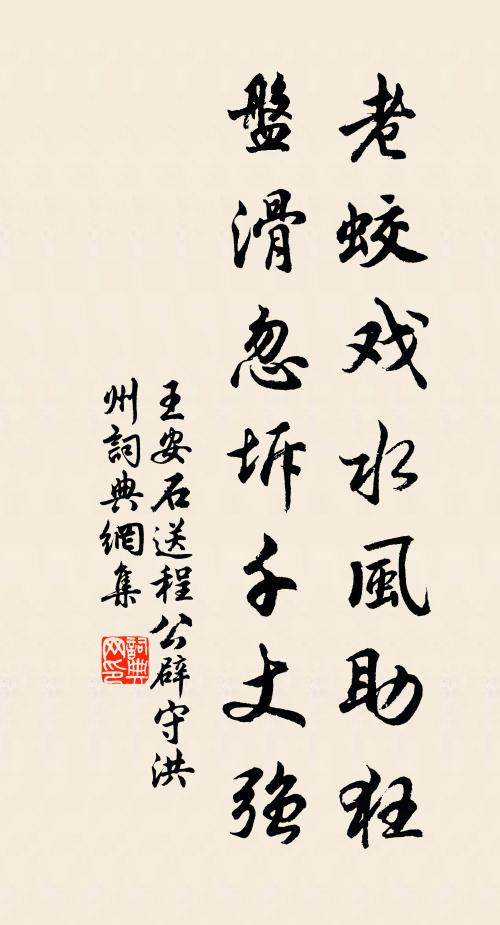 老蛟戏水風助狂
盤滑忽坼千丈强
王安石送程公辟守洪
州詞典網集
詞典網印